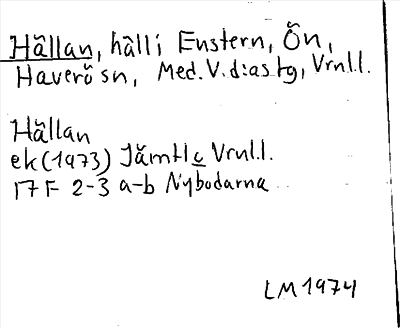 Hällan, häll i Enstern, Ön,
Haverö sn, Med. V. d:as tg, Vrnl.l.
Hällan
ek (1973) Jämtl c Vrnl.l.
17 F 2-3 a-b Nybodarna
LM 1974